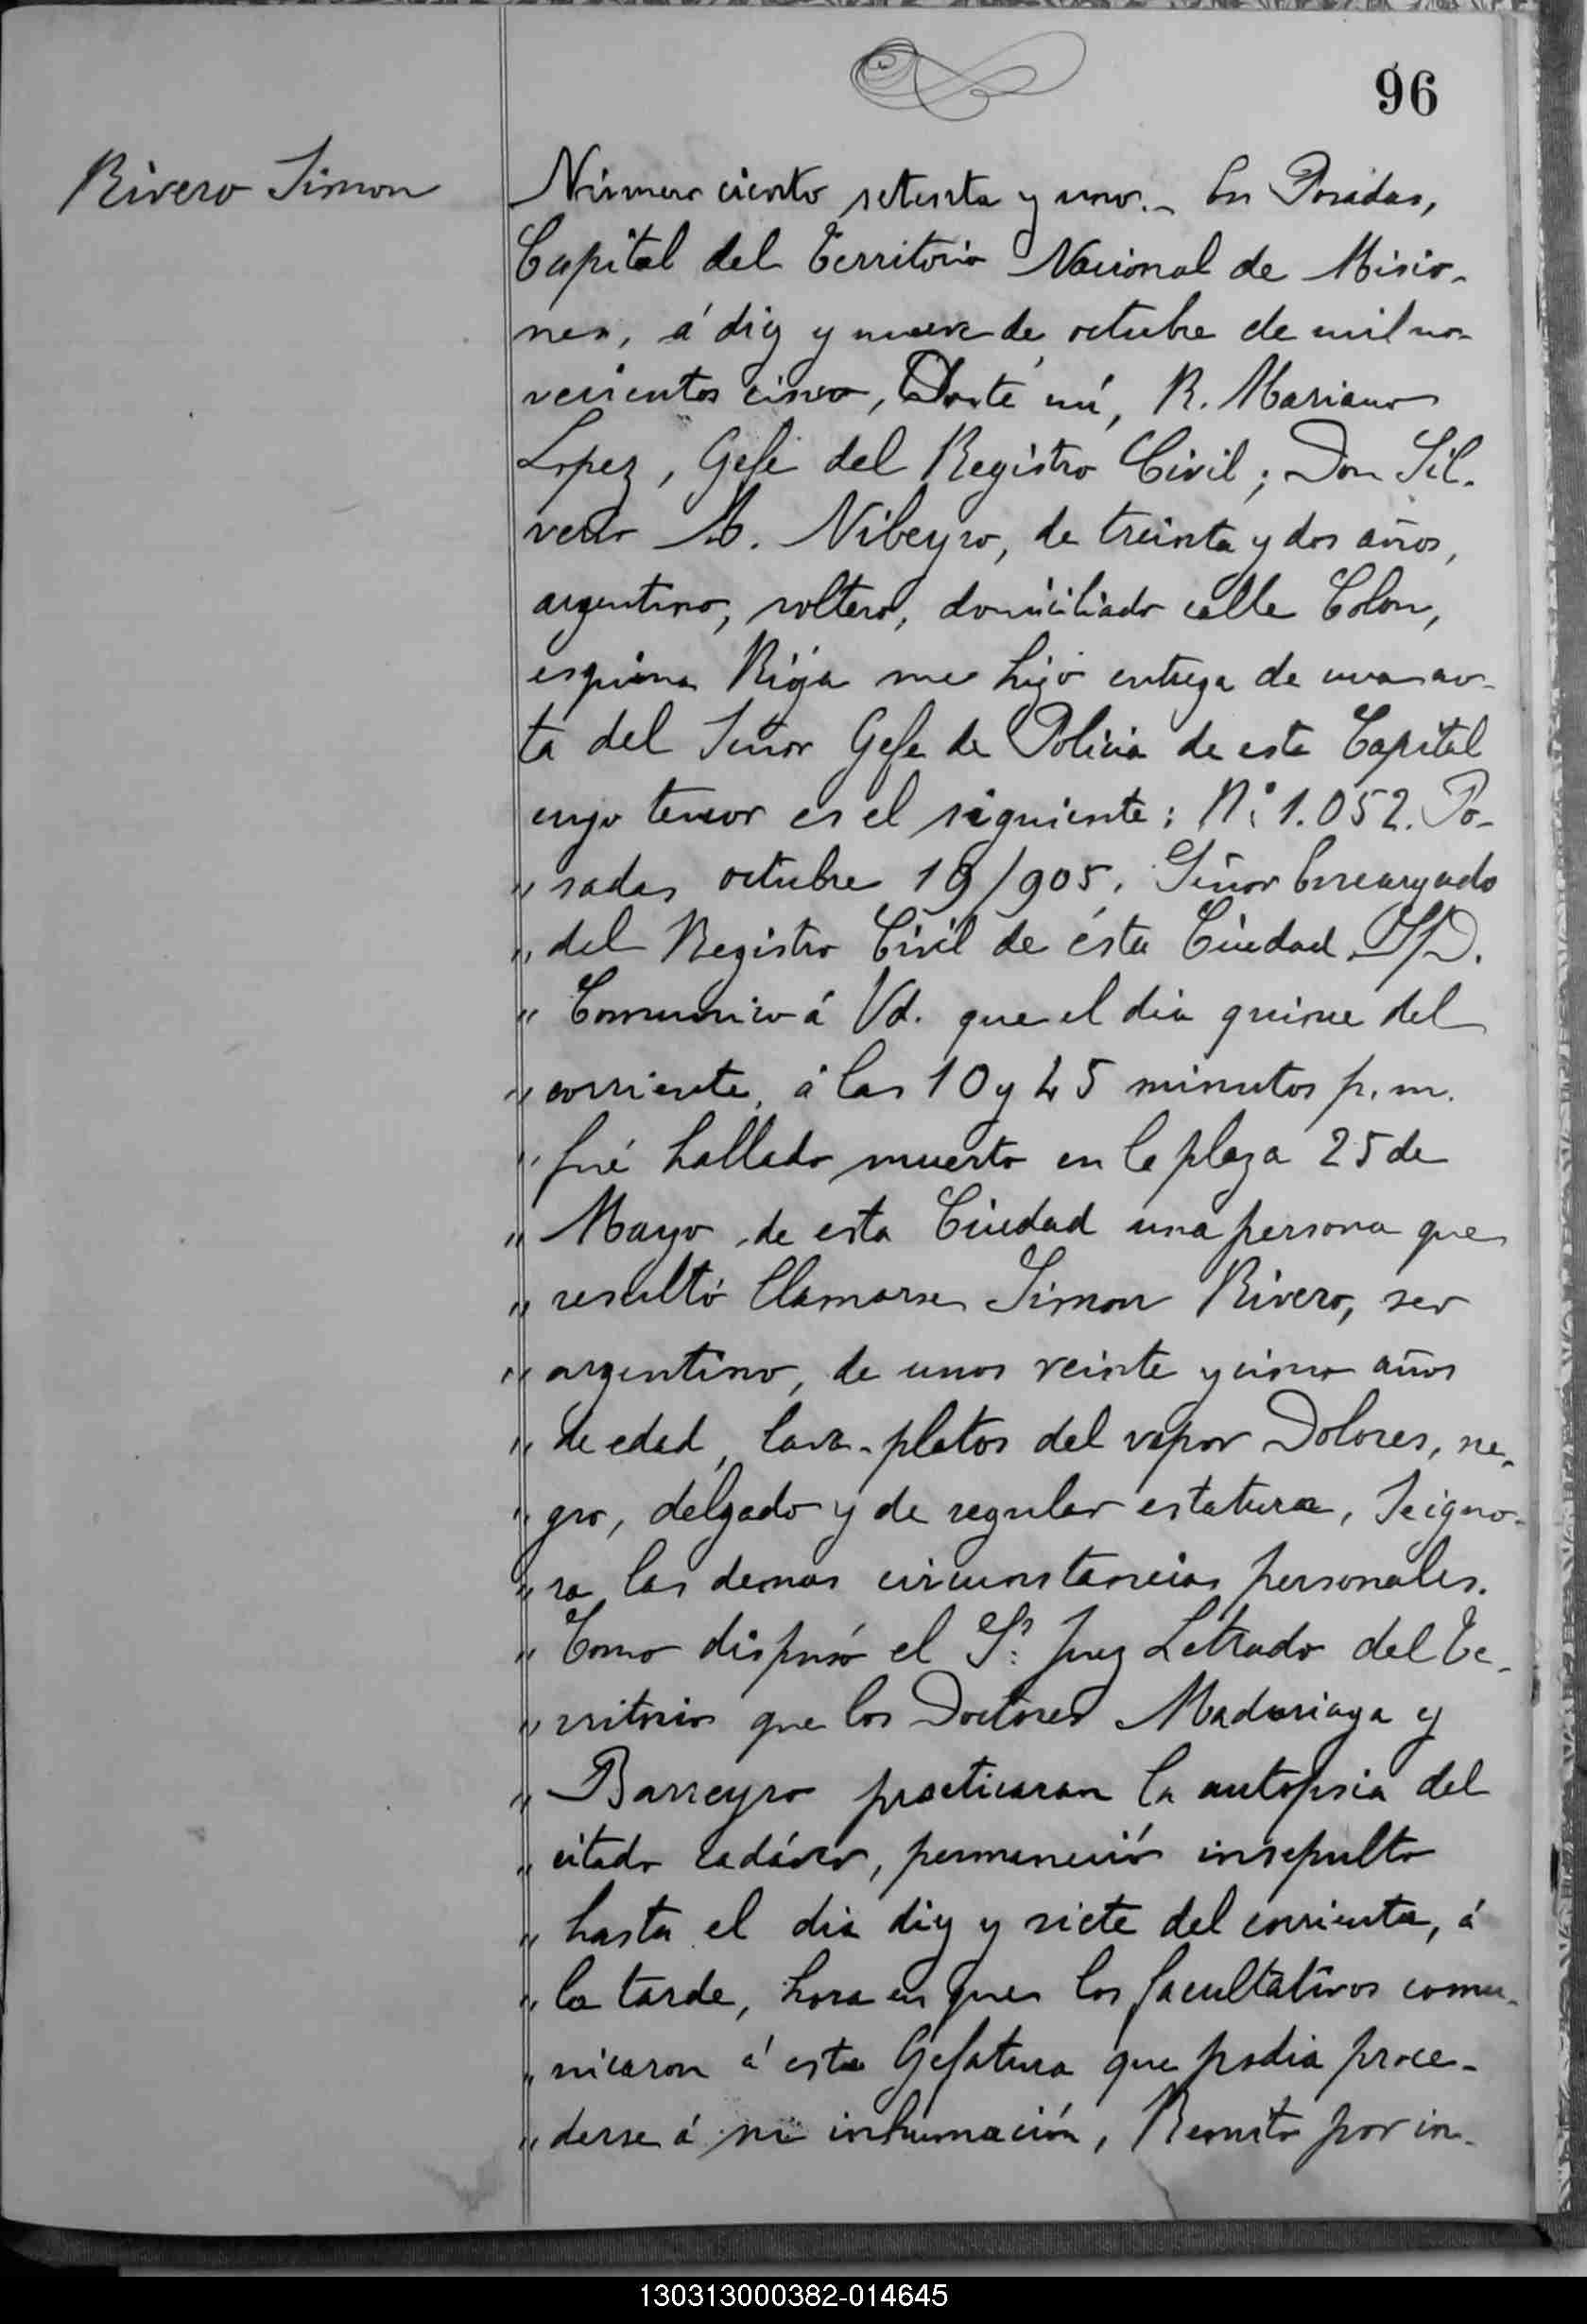 96
Rivero Simon
Número ciento setenta y uno.- En Posadas,
Capital del Territorio Nacional de Misio-
nes, á diez y nueve de octubre de mil no-
vecientos cinco, Ante mí, R. Mariano
Lopez, Gefe del Registro Civil; Don Sil-
verio M. Nibeyro, de treinta y dos años,
argentino, soltero, domiciliado calle Colon,
esquina Rioja me hizo entrega de una no-
ta del Señor Gefe de Policia de esta Capital
cuyo tenor es el siguiente: Nº 1.052. Po-
" sadas octubre 19/905. Señor Encargado
" del Registro Civil de ésta Ciudad S/D.
" Comunico á Vd. que el dia quince del
" corriente, á las 10 y 45 minutos p.m.
" fué hallado muerto en la plaza 25 de
" Mayo de esta Ciudad una persona que
" resultó llamarse Simon Rivero, ser
" argentino, de unos veinte y cinco años
" de edad, lava-platos del vapor Dolores, ne-
" gro, delgado y de regular estatura, Se igno-
" ra las demas circunstancias personales.
" Como dispusó el Sr. Juez Letrado del Te-
" rritorio que los Doctores Madariaga y
" Barreyro practicaran la autopsia del
" citado cadáver, permaneció insepulto
" hasta el dia diez y siete del corriente, á
" la tarde, hora en que los facultativos comu-
" nicaron á esta Gefatura que podia proce-
" derse á su inhumación, Remito por in-
130313000382-014645